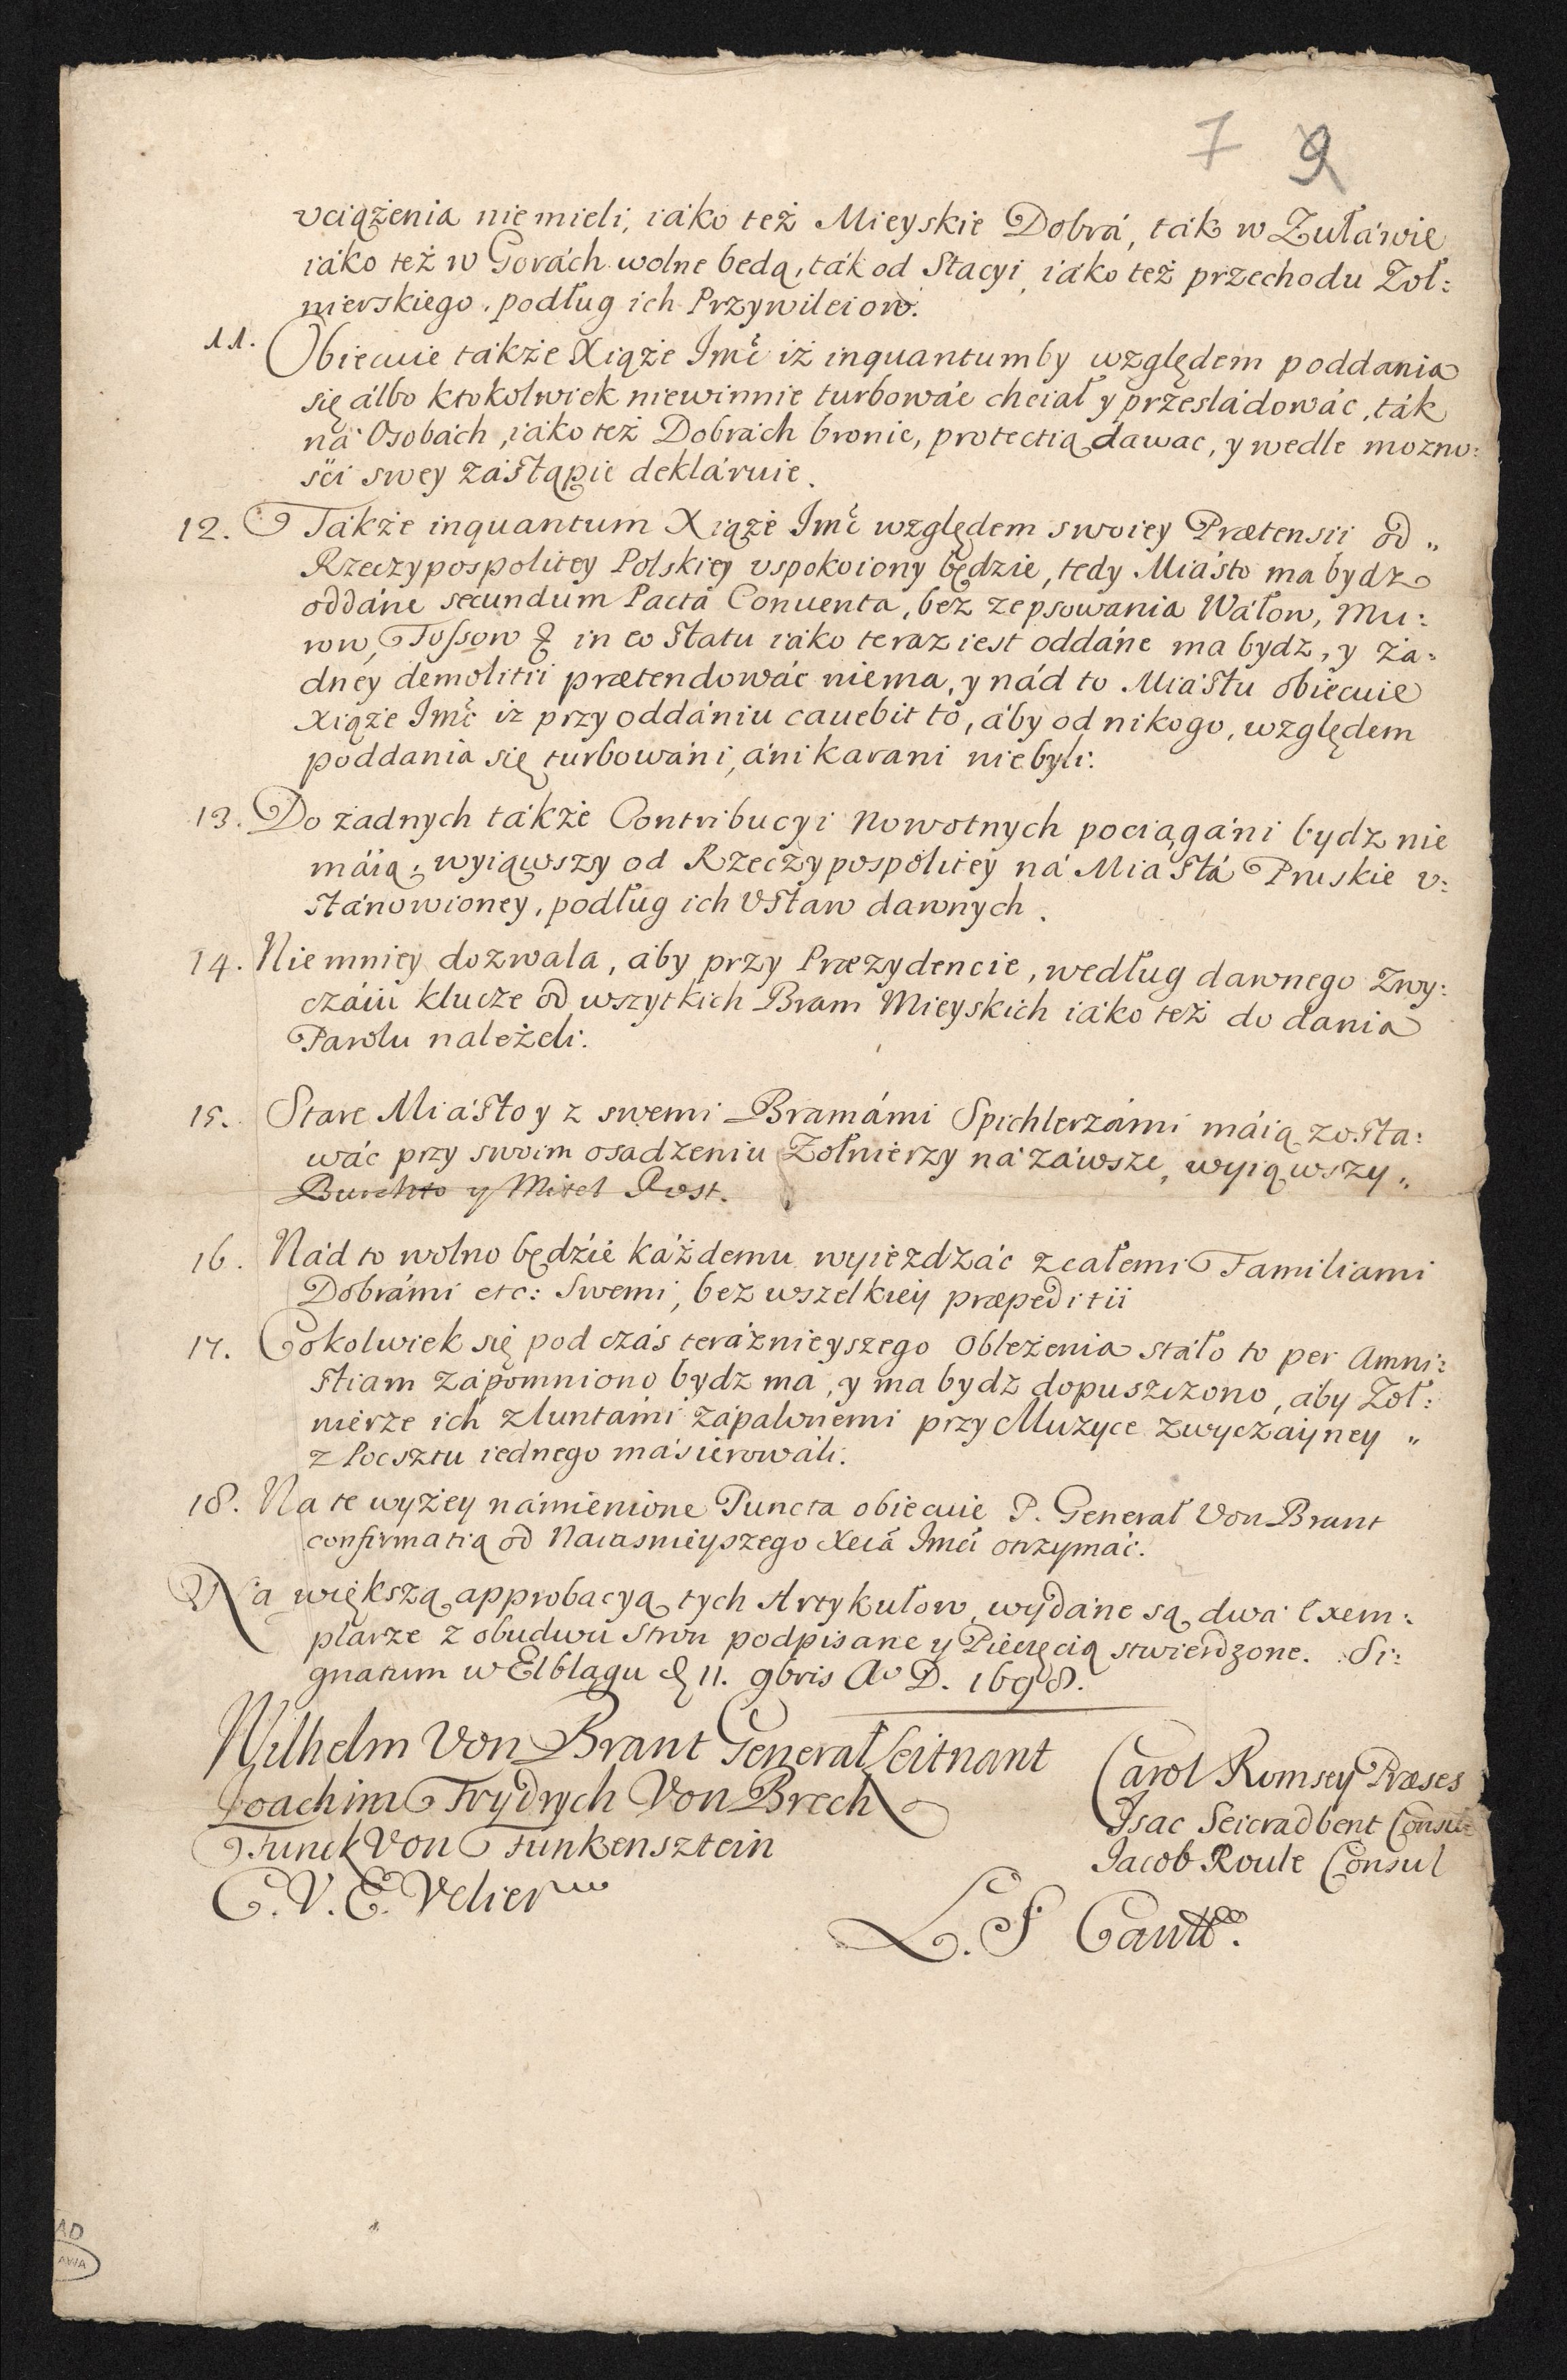 7 9
vciążenia nie mieli, iáko też Mieyskie Dobrá, ták w Zuławie
iáko też w Gorách wolne bedą, ták od Stacyi, iáko też przechodu Zoł:
nierskiego, podług ich Przywileiow.
11. Obiecuie tákże Xiąże Jmć iż inquantumby względem poddania
się álbo ktokolwiek niewinnie turbowáć chciał y prześládowác, ták
ná Osobách, iáko też Dobrách bronic, protectią dawac, y wedle mozno:
sći swey zástąpic deklaruie.
12. Tákże inquantum Xiąże Jmć względem swoiey Prætensii od „
Rzeczypospolitey Polskiey vspokoiony będzie, tedy Miásto ma bydz
oddáne secundum Pacta Conuenta, bez zepsowania Wáłow, Mu:
row, Fossow & in eo statu iáko teraz iest oddáne ma bydź, y ża:
dney demolitii prætendowáć niema, y nád to Miástu obiecuie
Xiąże Jmć iż przy oddániu cauebit to, áby od nikogo, względem
poddania się turbowáni, áni karani nie byli.
13. Do żadnych tákże Contribucyi nowotnych pociągáni bydz nie
máią, wyiąwszy od Rzeczypospolitey ná Miastá Pruskie v:
stánowioney, podług ich Vstaw dawnych.
14. Niemniey dozwala, áby przy Præzydencie, według dawnego Zwy:
czáiu klucze od wszytkich Bram Mieyskich iáko też do dania
Parolu należeli.
15. Stare Miásto y z swemi Bramámi Spichlerzámi máią zosta:
wáć przy swoim osadzeniu Zołnierzy ná záwsze, wyiąwszy „
Burchto y Mitel Rost.
16. Nád to wolno będźie káżdemu wyieżdżáć z całemi Familiami
Dobrámi etc: Swemi, bez wszelkiey præpeditii
17. Cokolwiek się pod czás teráznieyszego Obleżenia stáło to per Amni:
stiam zápomniono bydz ma, y ma bydź dopuszczono, áby Zoł:
nierze ich z luntámi zápalonemi przy Muzyce zwyczáyney „
z Pocsztu iednego másierowáli.
18. Na te wyżey námienione Puncta obiecuie P. Generał Von Brant
confirmatią od Naiasnieyszego Xcia Jmći otrzymać.
Na większą approbacyą tych Artykułow wydáne są dwá Exem:
plarze z obudwu stron podpisane y Pieczęcią stwierdzone. Si:
gnatum w Elblągu d 11. 9bris Ao D. 1698.
Wilhelm Von Brant Generał Leitnant
Carol Romsey Præses
Joachim Frydrych Von Brech
Isac Seicradbent Consul
Funck Von Funkensztein
Jacob Roule Consul
C. V. E. Velier
L. S Cantt.
AD
AWA